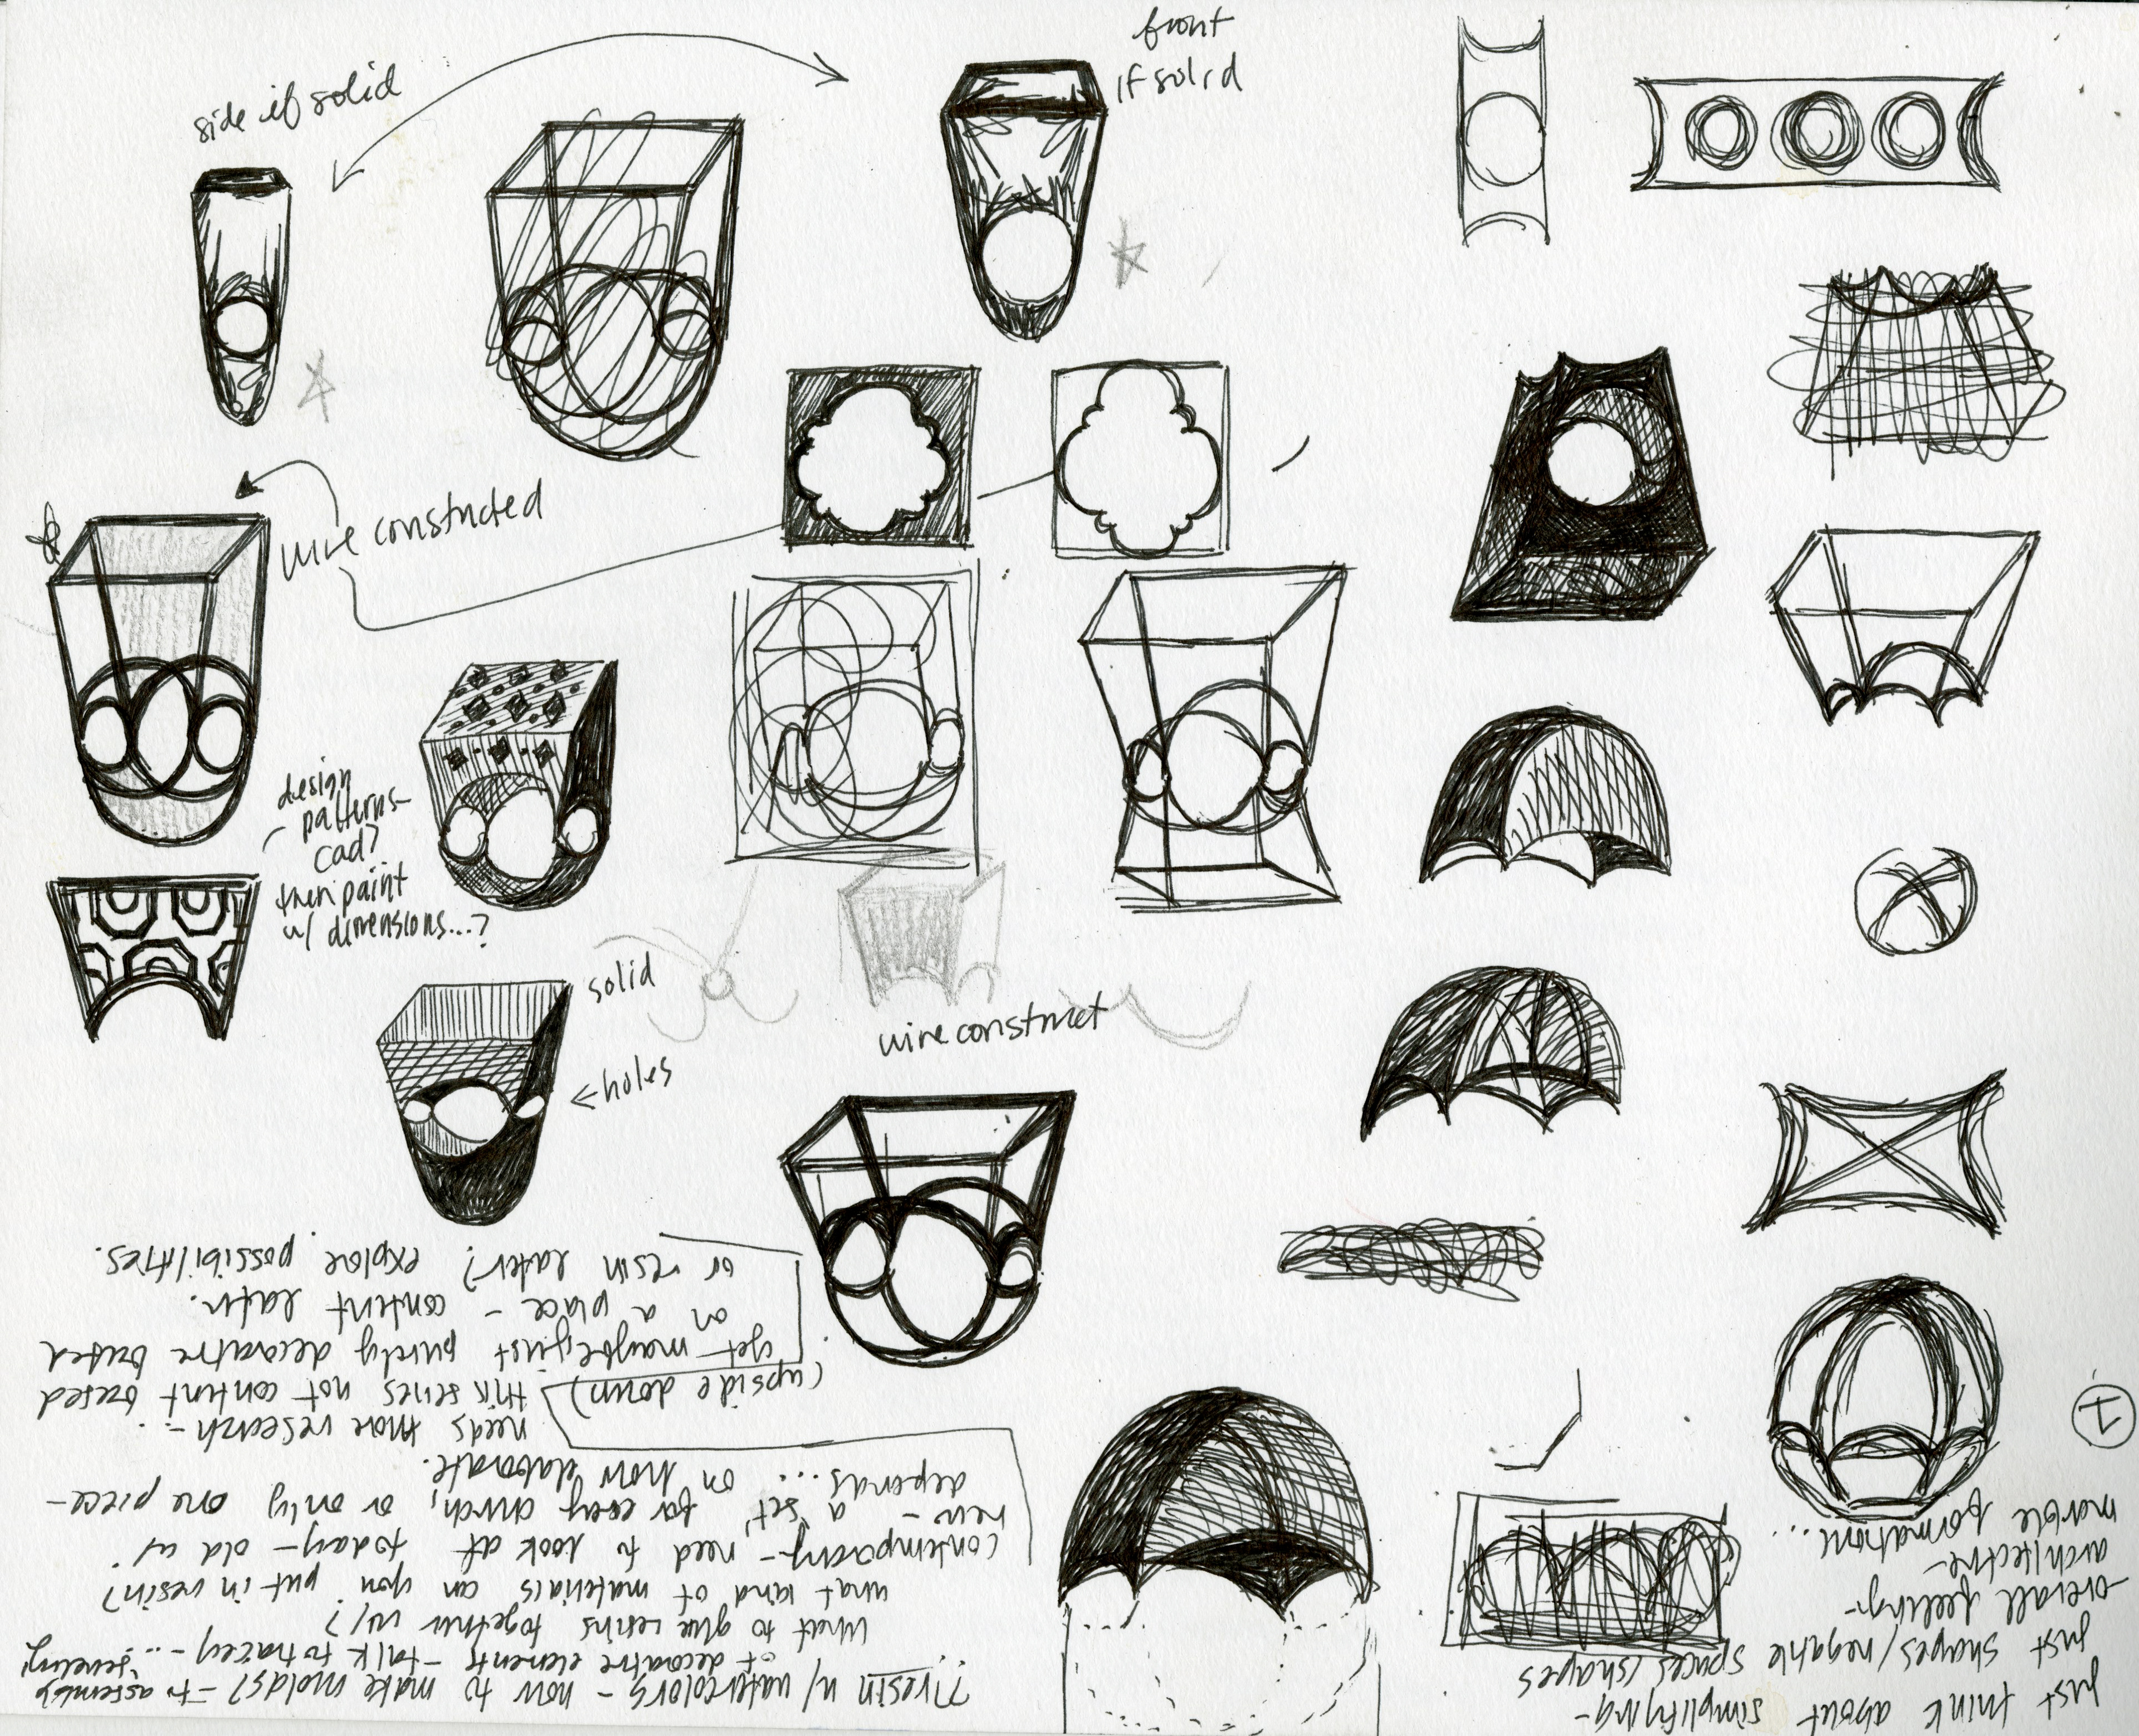 side if solid
front
if solid
wire constructed
design
patterns-
cad?
then paint
w/ dimensions...?
solid
← holes
wire construct
just think about simplifying-
just shapes/negative spaces/shapes
-overall feeling-
architecture-
marble formations...
1
??resin w/ watercolors - how to make molds? - to assembly
of decorative elements - talk to tracey - ... jewelry?
what to glue resins together w/?
what kind of materials can you put in resin?
contemporary - need to look at today - old w/
new - a "set" for every church, or only one piece -
depends... on how elaborate.
needs more research - ...
(upside down)
this series not content based
yet - maybe just purely decorative based
on a place - content later.
or resin later? explore possibilities.